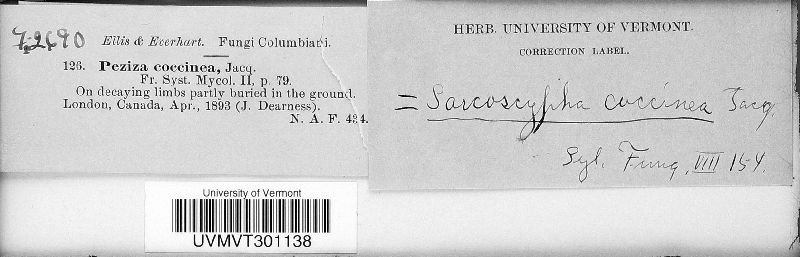 72690
Ellis & Everhart. Fungi Columbiani.
126. Peziza coccinea, Jacq.
Fr. Syst. Mycol. II, p. 79.
On decaying limbs partly buried in the ground.
London, Canada, Apr., 1893 (J. Dearness).
N. A. F. 434.
HERB. UNIVERSITY OF VERMONT.
CORRECTION LABEL.
= Sarcoscypha coccinea Jacq.
Syl. Fung. VIII 154.
University of Vermont
UVMVT301138